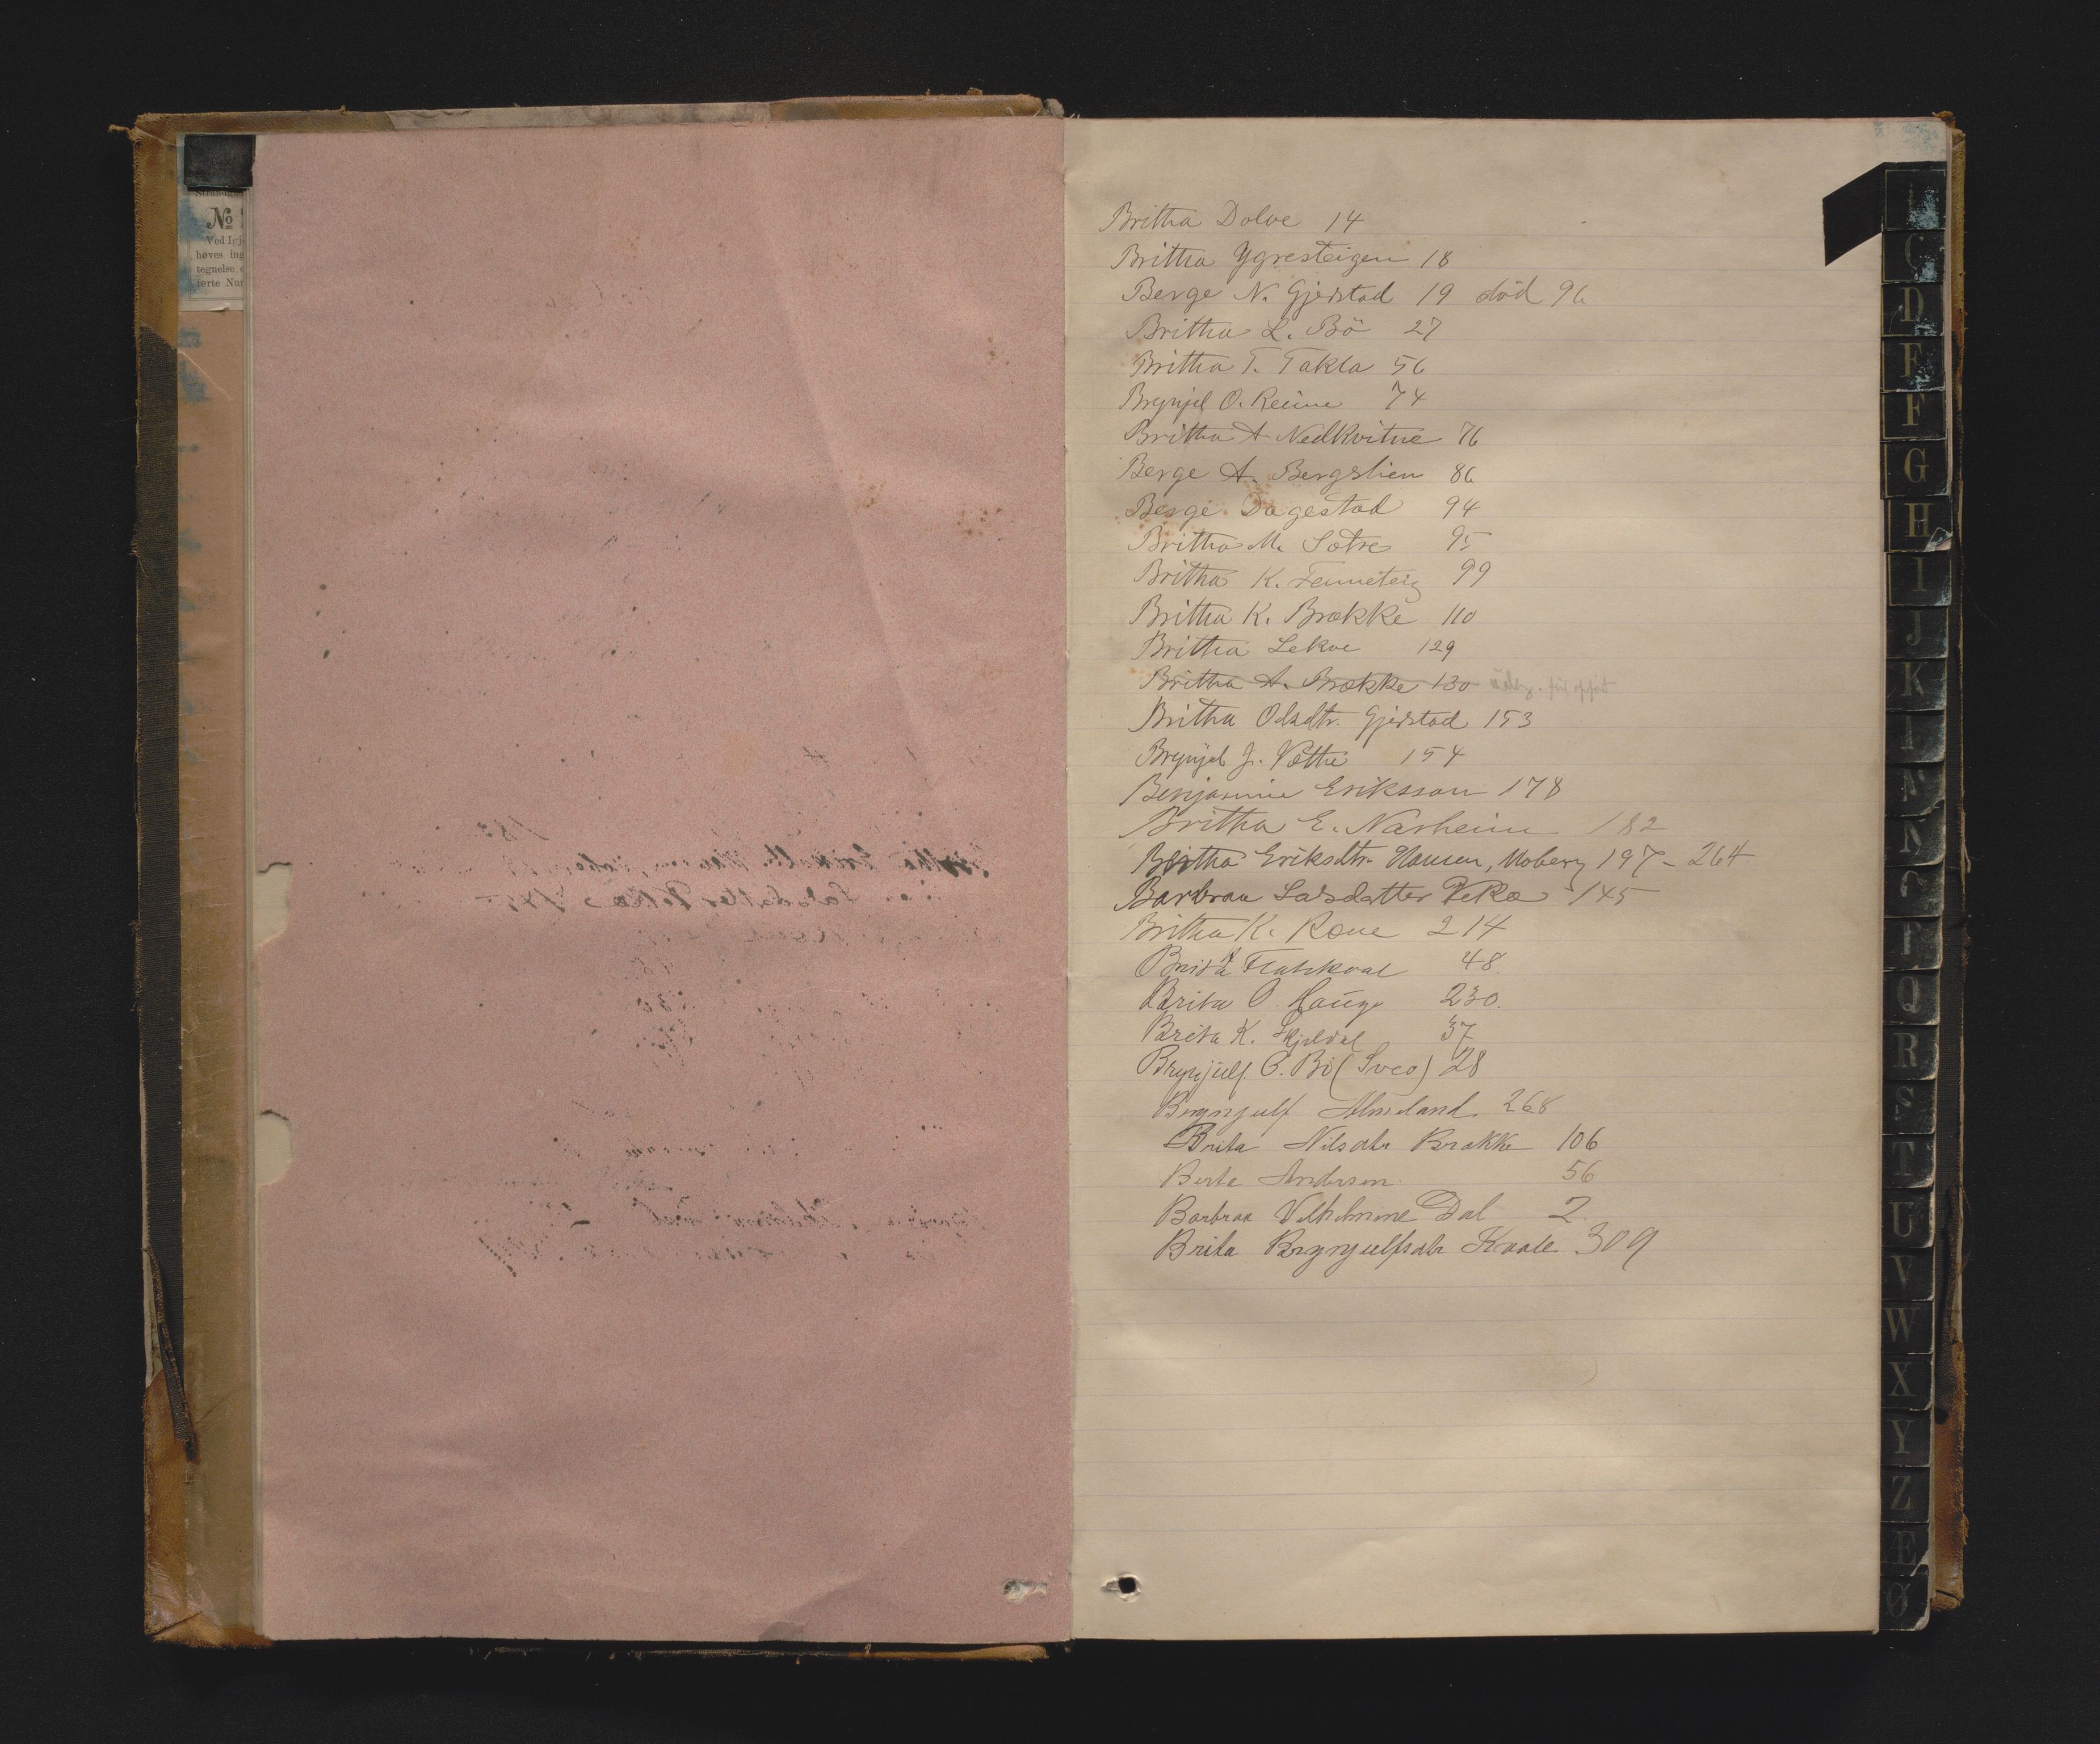 №
Ved Igj
høves ing
tegnelse
førte Nu
Britha Dolve 14
Britha Ygresteigen 18
Berge N. Gjerstad 19 död 96
Britha L. Bö 27
Britha T. Takla 56
Brynjel O. Reime 74
Britha A Nedkvitne 76
Berge A. Bergslien 86
Berge Dagestad 94
Britha M. Sætre 95
Britha K. Tenneteig 99
Britha K. Brække 110
Britha Lekve 129
Britha A. Brække 130
Britha Olsdtr. Gjerstad 153
Brynjel J. Væthe 154
Benjamine Eriksson 178
Britha E. Nasheim 182
Britha Eriksdtr. Hansen, Moberg 197 - 264
Barbrau Larsdatter Veka 145
Britha K. Rone 214
Brita Flatekval 48.
Brita O. Hauge 230.
Brita K. Skjeldal 37
Brynjulf O. Bö (Sveo) 28
Brynjulf Almeland 268
Brita Nilsdtr Brække 106
Berte Andersen 56
Barbraa Vilhelmine Dal 2
Brita Brynjulfsdtr Kvale 309
C
D
E
F
G
H
I
J
K
L
M
N
O
P
Q
R
S
T
U
V
W
X
Y
Z
Æ
Ø